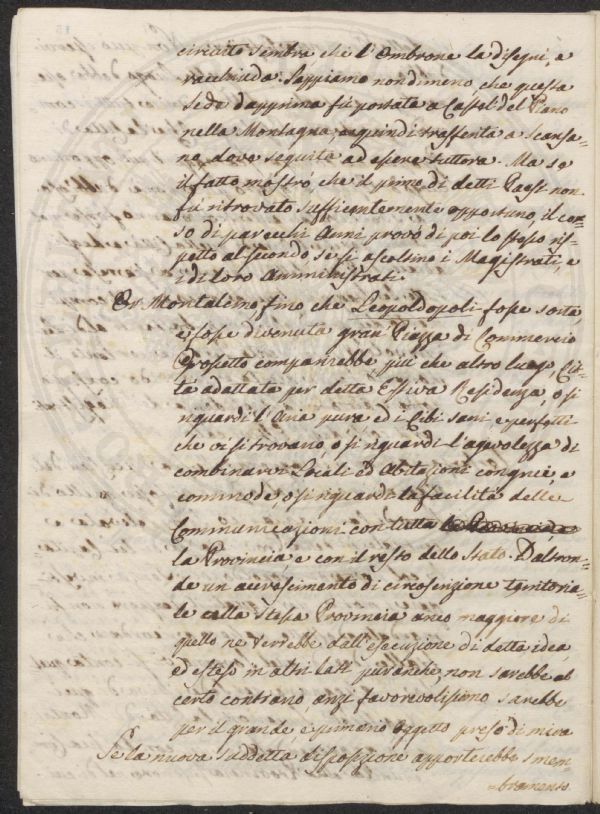 circuito sembra, che l'Ombrone la disegni, e
racchiuda. Sappiamo nondimeno, che questa
sede dapprima fù portata a Castel del Piano
nella Montagna e quindi trasferita a Scansa=
no, dove seguita ad essere tuttora. Ma se
il fatto mostrò, che il primo di detti Paesi non
fù ritrovato sufficientemente opportuno, il cor=
so di parecchi Anni provò di poi lo stesso ris=
petto al secondo se si ascoltino i Magistrati, e
i di loro Amministrati.
Or Montalcino fino che Leopoldopoli fosse sorta,
e fosse divenuta gran Piazza di Commercio
Grosseto comparirebbe più che altro luogo, Cit=
tà adattata per detta Estiva Residenza, o si
riguardi l'Aria pura ed i Cibi sani, e perfetti
che vi si trovano, o si riguardi l'agevolezza di
combinarvi Locali ed Abitazioni congrue, e
commode, o si riguardi la facilità delle
Communicazioni con tutta la Provincia
la Provincia, e con il resto dello Stato. D'altron=
de un accrescimento di circoscrizione territoria=
le colla stessa Provincia anco maggiore di
quello ne verrebbe dall'esecuzione di detta idea,
ed esteso in altri lati puranche, non sarebbe al
certo contrario anzi favorevolissimo sarebbe
per il grande e primario oggetto preso di mira
Se la nuova suddetta disposizione apporterebbe smem=
=bramento